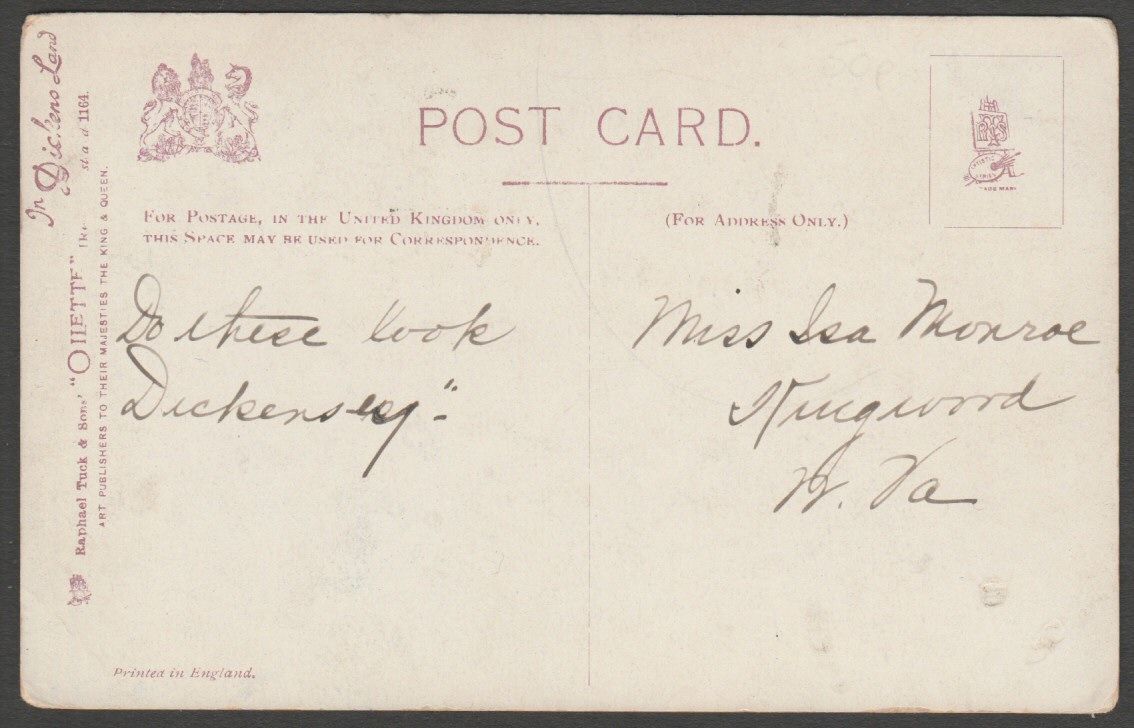 In Dickens Land
Raphael Tuck & Sons' "OILETTE" 1164.
ART PUBLISHERS TO THEIR MAJESTIES THE KING & QUEEN.
POST CARD.
FOR POSTAGE, IN THE UNITED KINGDOM ONLY,
THIS SPACE MAY BE USED FOR CORRESPONDENCE.
(FOR ADDRESS ONLY.)
Do these look
Dickensey"-
Miss Isa Monroe
Kingwood
W. Va
ARTISTIC
SERIES
Printed in England.